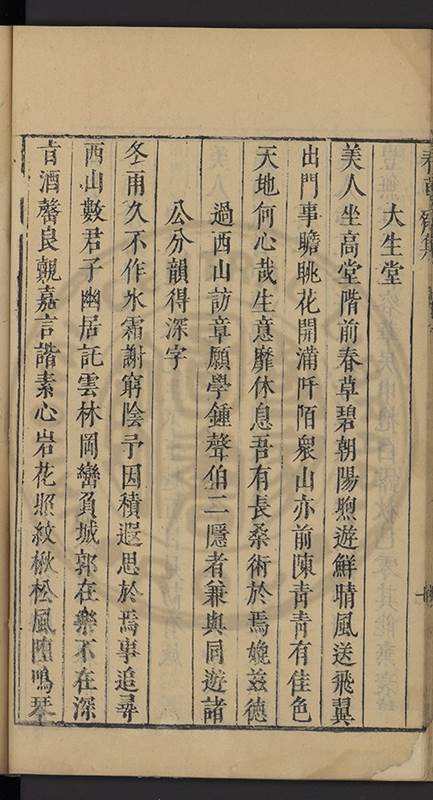 大生堂
美人坐高堂階前春草碧朝陽煦遊鮮晴風送飛翼
出門事瞻眺花開滿阡陌衆山亦前陳青青有佳色
天地何心哉生意靡休息吾有長桑術於焉娩茲德
過西山訪章願學鍾聲伯二隱者兼與同遊諸
公分韻得深字
冬雨久不作氷霜謝窮陰予因積遐思於焉事追尋
西山數君子幽居託雲林岡巒負城郭在樂不在深
旨酒馨良覿嘉言諧素心岩花照紋楸松風墮鳴琴